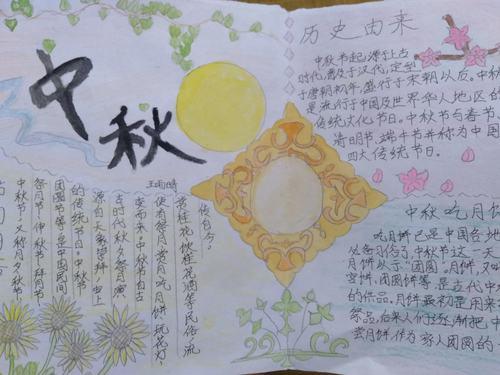 中秋
历史由来
中秋节起源于上古
时代,普及于汉代,定型
于唐朝初年,盛行于宋朝以后。中秋
是流行于中国及世界华人地区的
传统文化节日。中秋节与春节、
清明节、端午节并称为中国
四大传统节日。
中秋吃月饼
吃月饼已是中国各地
必备习俗了,中秋节这一天
月饼以示“团圆”。月饼,又叫
宫饼、团圆饼等,是古代中
的供品。月饼最初是用来
祭品,后来人们逐渐把中
尝月饼,作为家人团圆的一
王雨晴
中秋节,又称月夕、秋节
祭月节、仲秋节、拜月节
团圆节等,是中国民间
的传统节日。中秋节
源自天象崇拜,由上
古时代秋夕祭月演
变而来。中秋节自古
便有祭月、赏月、吃月饼、玩花灯、
赏桂花、饮桂花酒等民俗,流
传自今。